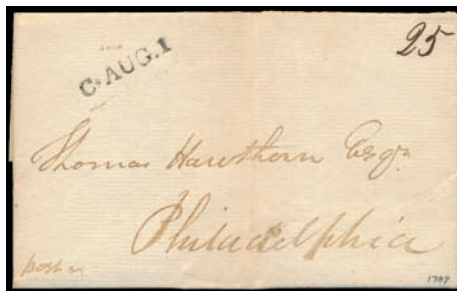 C·AUG.1
25
Thomas Hawthorn Esqr
Philadelphia
1797